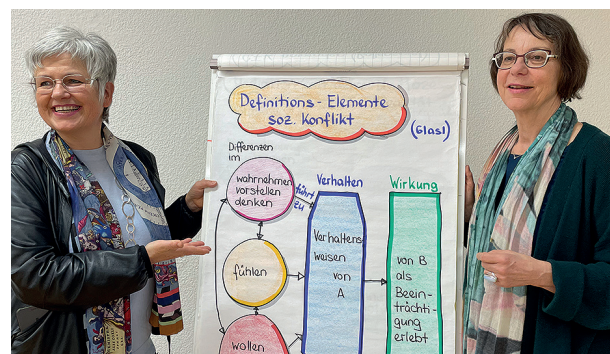 Definitions - Elemente
soz. Konflikt
(Glasl)
Differenzen
im
wahrnehmen
vorstellen
denken
führt
zu
fühlen
wollen
Verhalten
Verhaltens
weisen
von
A
Wirkung
von B
als
Beein-
trächti-
gung
erlebt